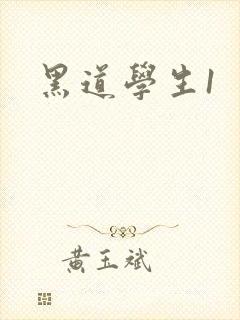 黑道學生1
黄玉斌